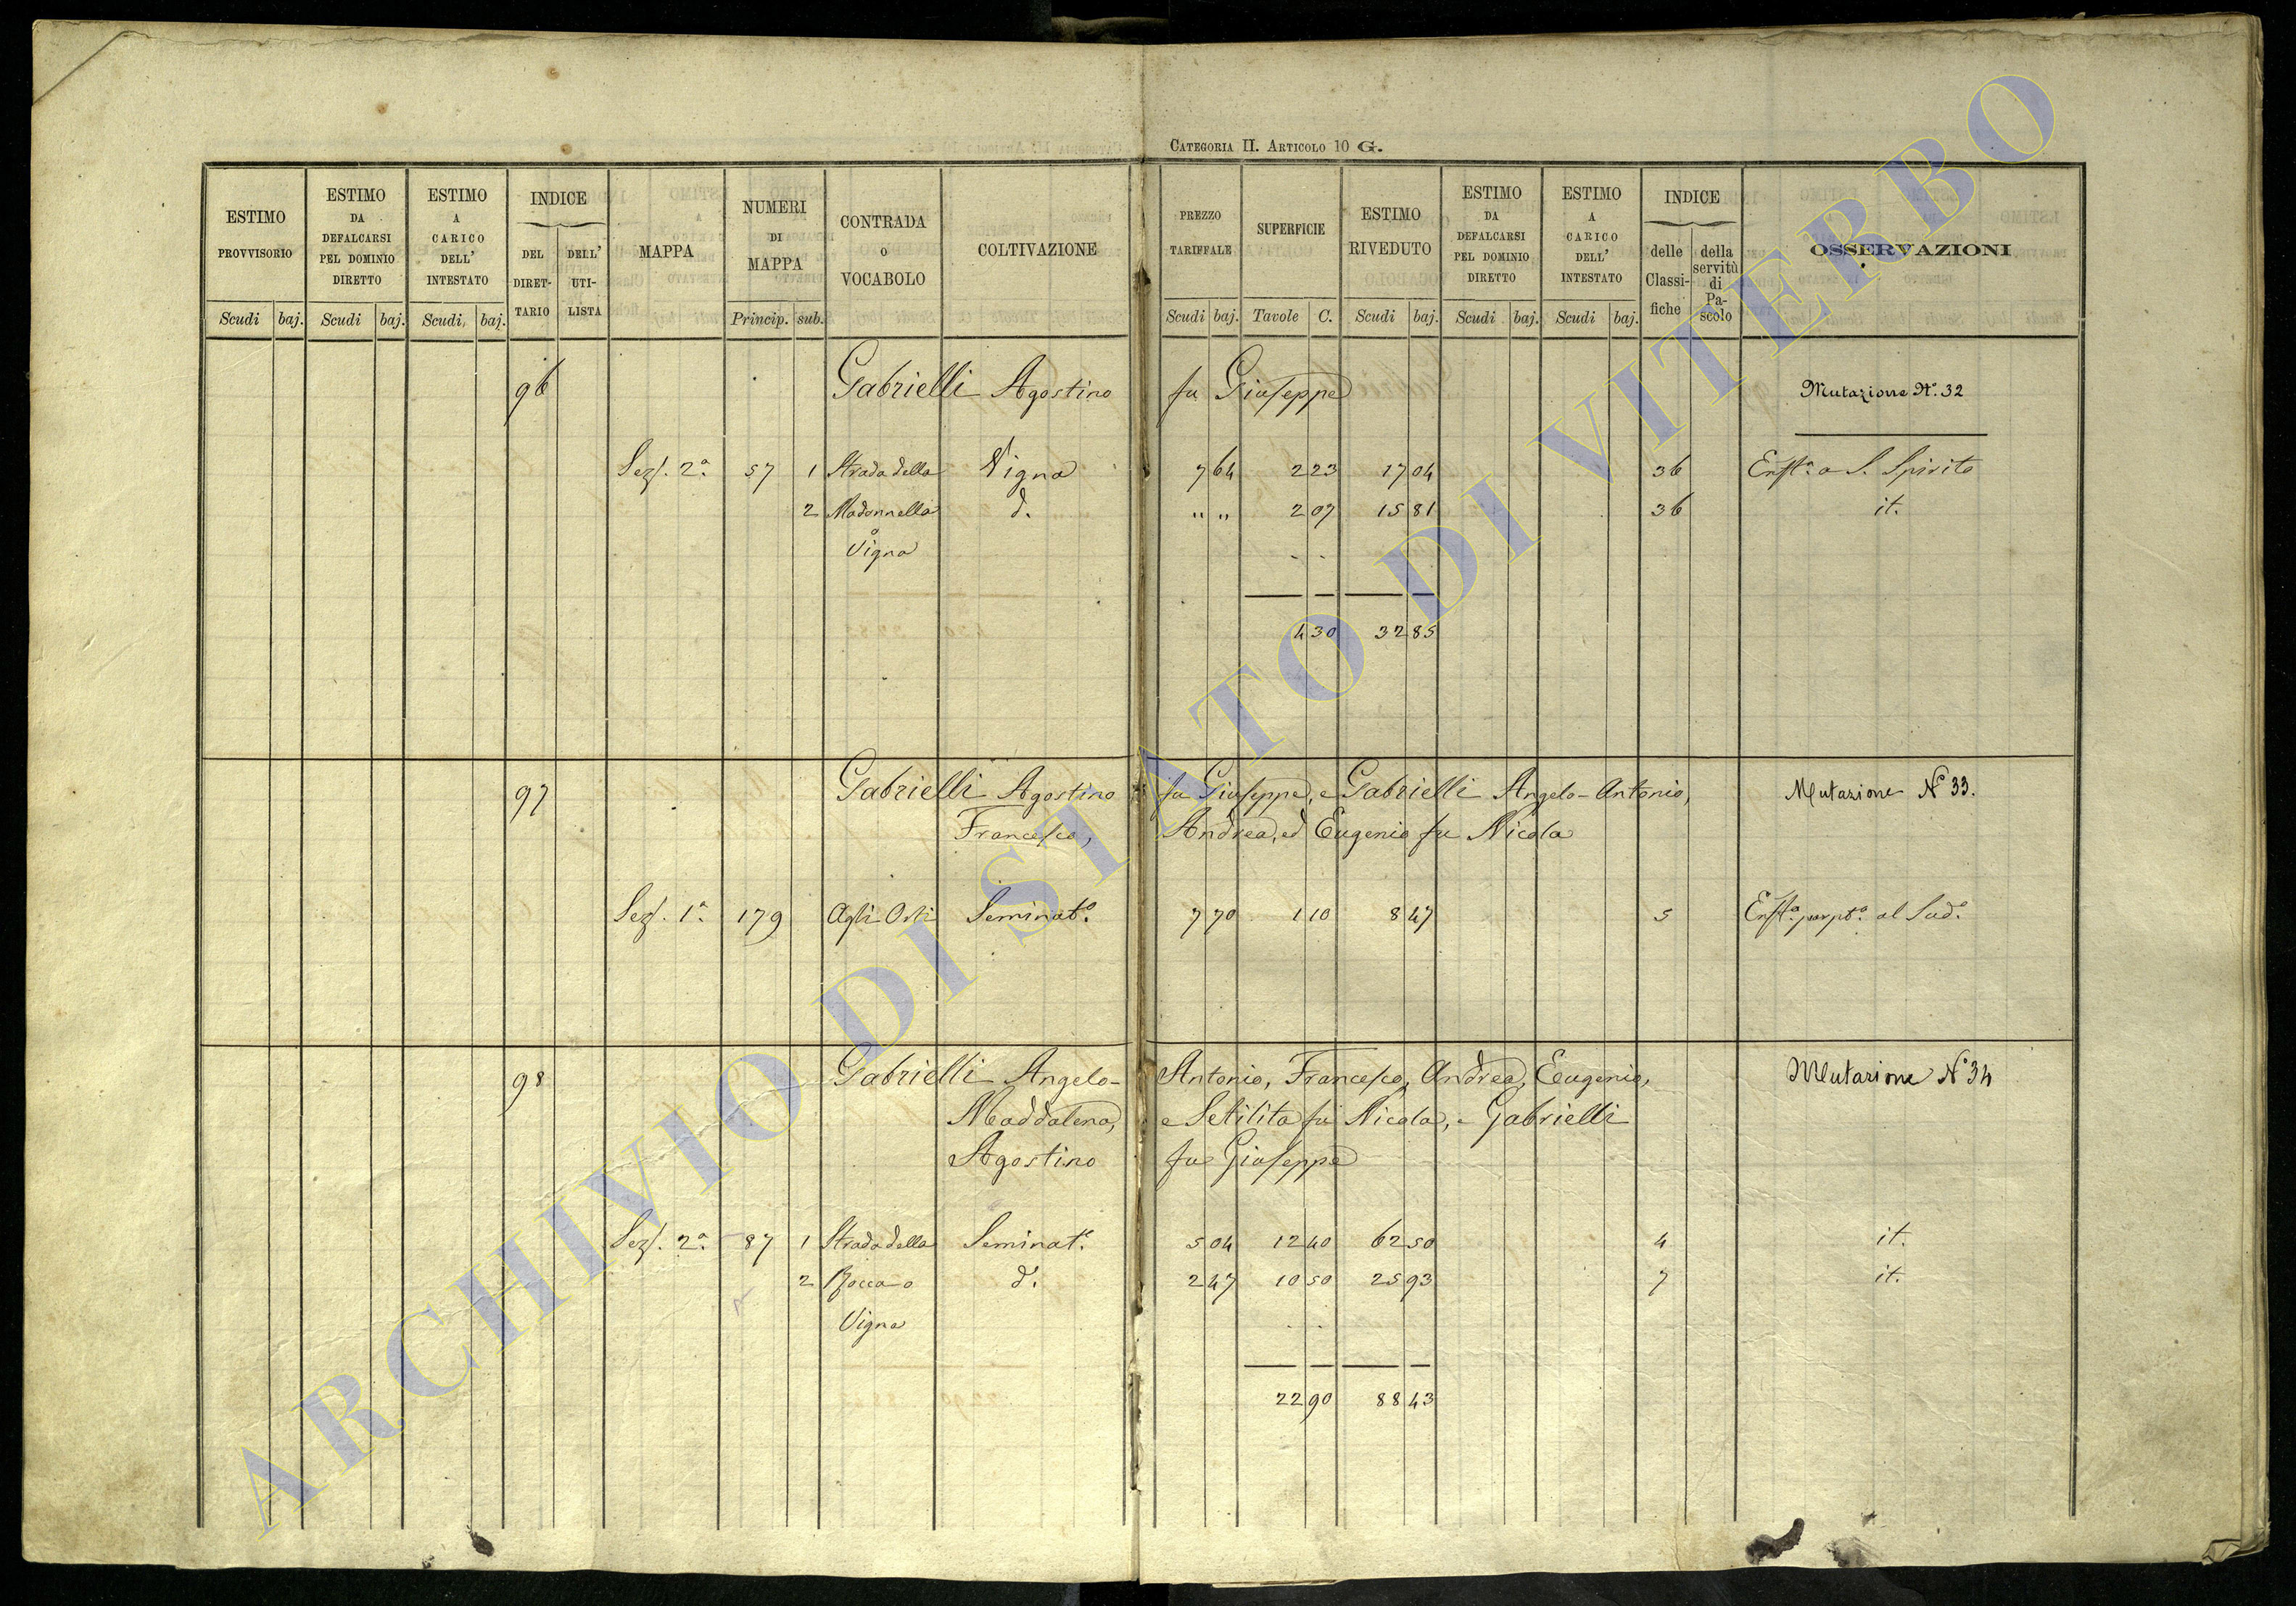 CATEGORIA II. ARTICOLO 10 G.
ESTIMO PROVVISORIO
ESTIMO DA DEFALCARSI PEL DOMINIO DIRETTO
ESTIMO A CARICO DELL' INTESTATO
INDICE
DEL DIRET-TARIO
DELL' UTI-LISTA
MAPPA
NUMERI DI MAPPA
CONTRADA o VOCABOLO
COLTIVAZIONE
PREZZO TARIFFALE
SUPERFICIE
ESTIMO RIVEDUTO
ESTIMO DA DEFALCARSI PEL DOMINIO DIRETTO
ESTIMO A CARICO DELL' INTESTATO
INDICE
delle Classi-fiche
della servitù di Pa-scolo
OSSERVAZIONI
Scudi baj. Scudi baj. Scudi baj. Princip. sub. Scudi baj. Tavole C. Scudi baj. Scudi baj. Scudi baj.
96 Gabrielli Agostino fu Giuseppe Mutazione N.° 32
Sez. 2a. 57 1 Strada della Vigna 7 64 2 23 17 04 36 Enft.a a S. Spirito
2 Madonnella d. " " 2 07 15 81 36 it.
o Vigna
4 30 32 85
97 Gabrielli Agostino fu Giuseppe, e Gabrielli Angelo-Antonio, Mutazione N° 33.
Francesco, Andrea, ed Eugenio fu Nicola
Sez. 1a. 179 Agli Orti Seminat.o 7 70 1 10 8 47 5 Enft.a perpt.a al Sud.o
98 Gabrielli Angelo-Antonio, Francesco, Andrea, Eugenio, Mutazione N° 34
Maddalena, e Setilita fu Nicola, e Gabrielli
Agostino fu Giuseppe
Sez. 2a. 87 1 Strada della Seminat.o 5 04 12 40 62 50 4 it.
2 Rocca o d.o 2 47 10 50 25 93 7 it.
Vigna
22 90 88 43
ARCHIVIO DI STATO DI VITERBO